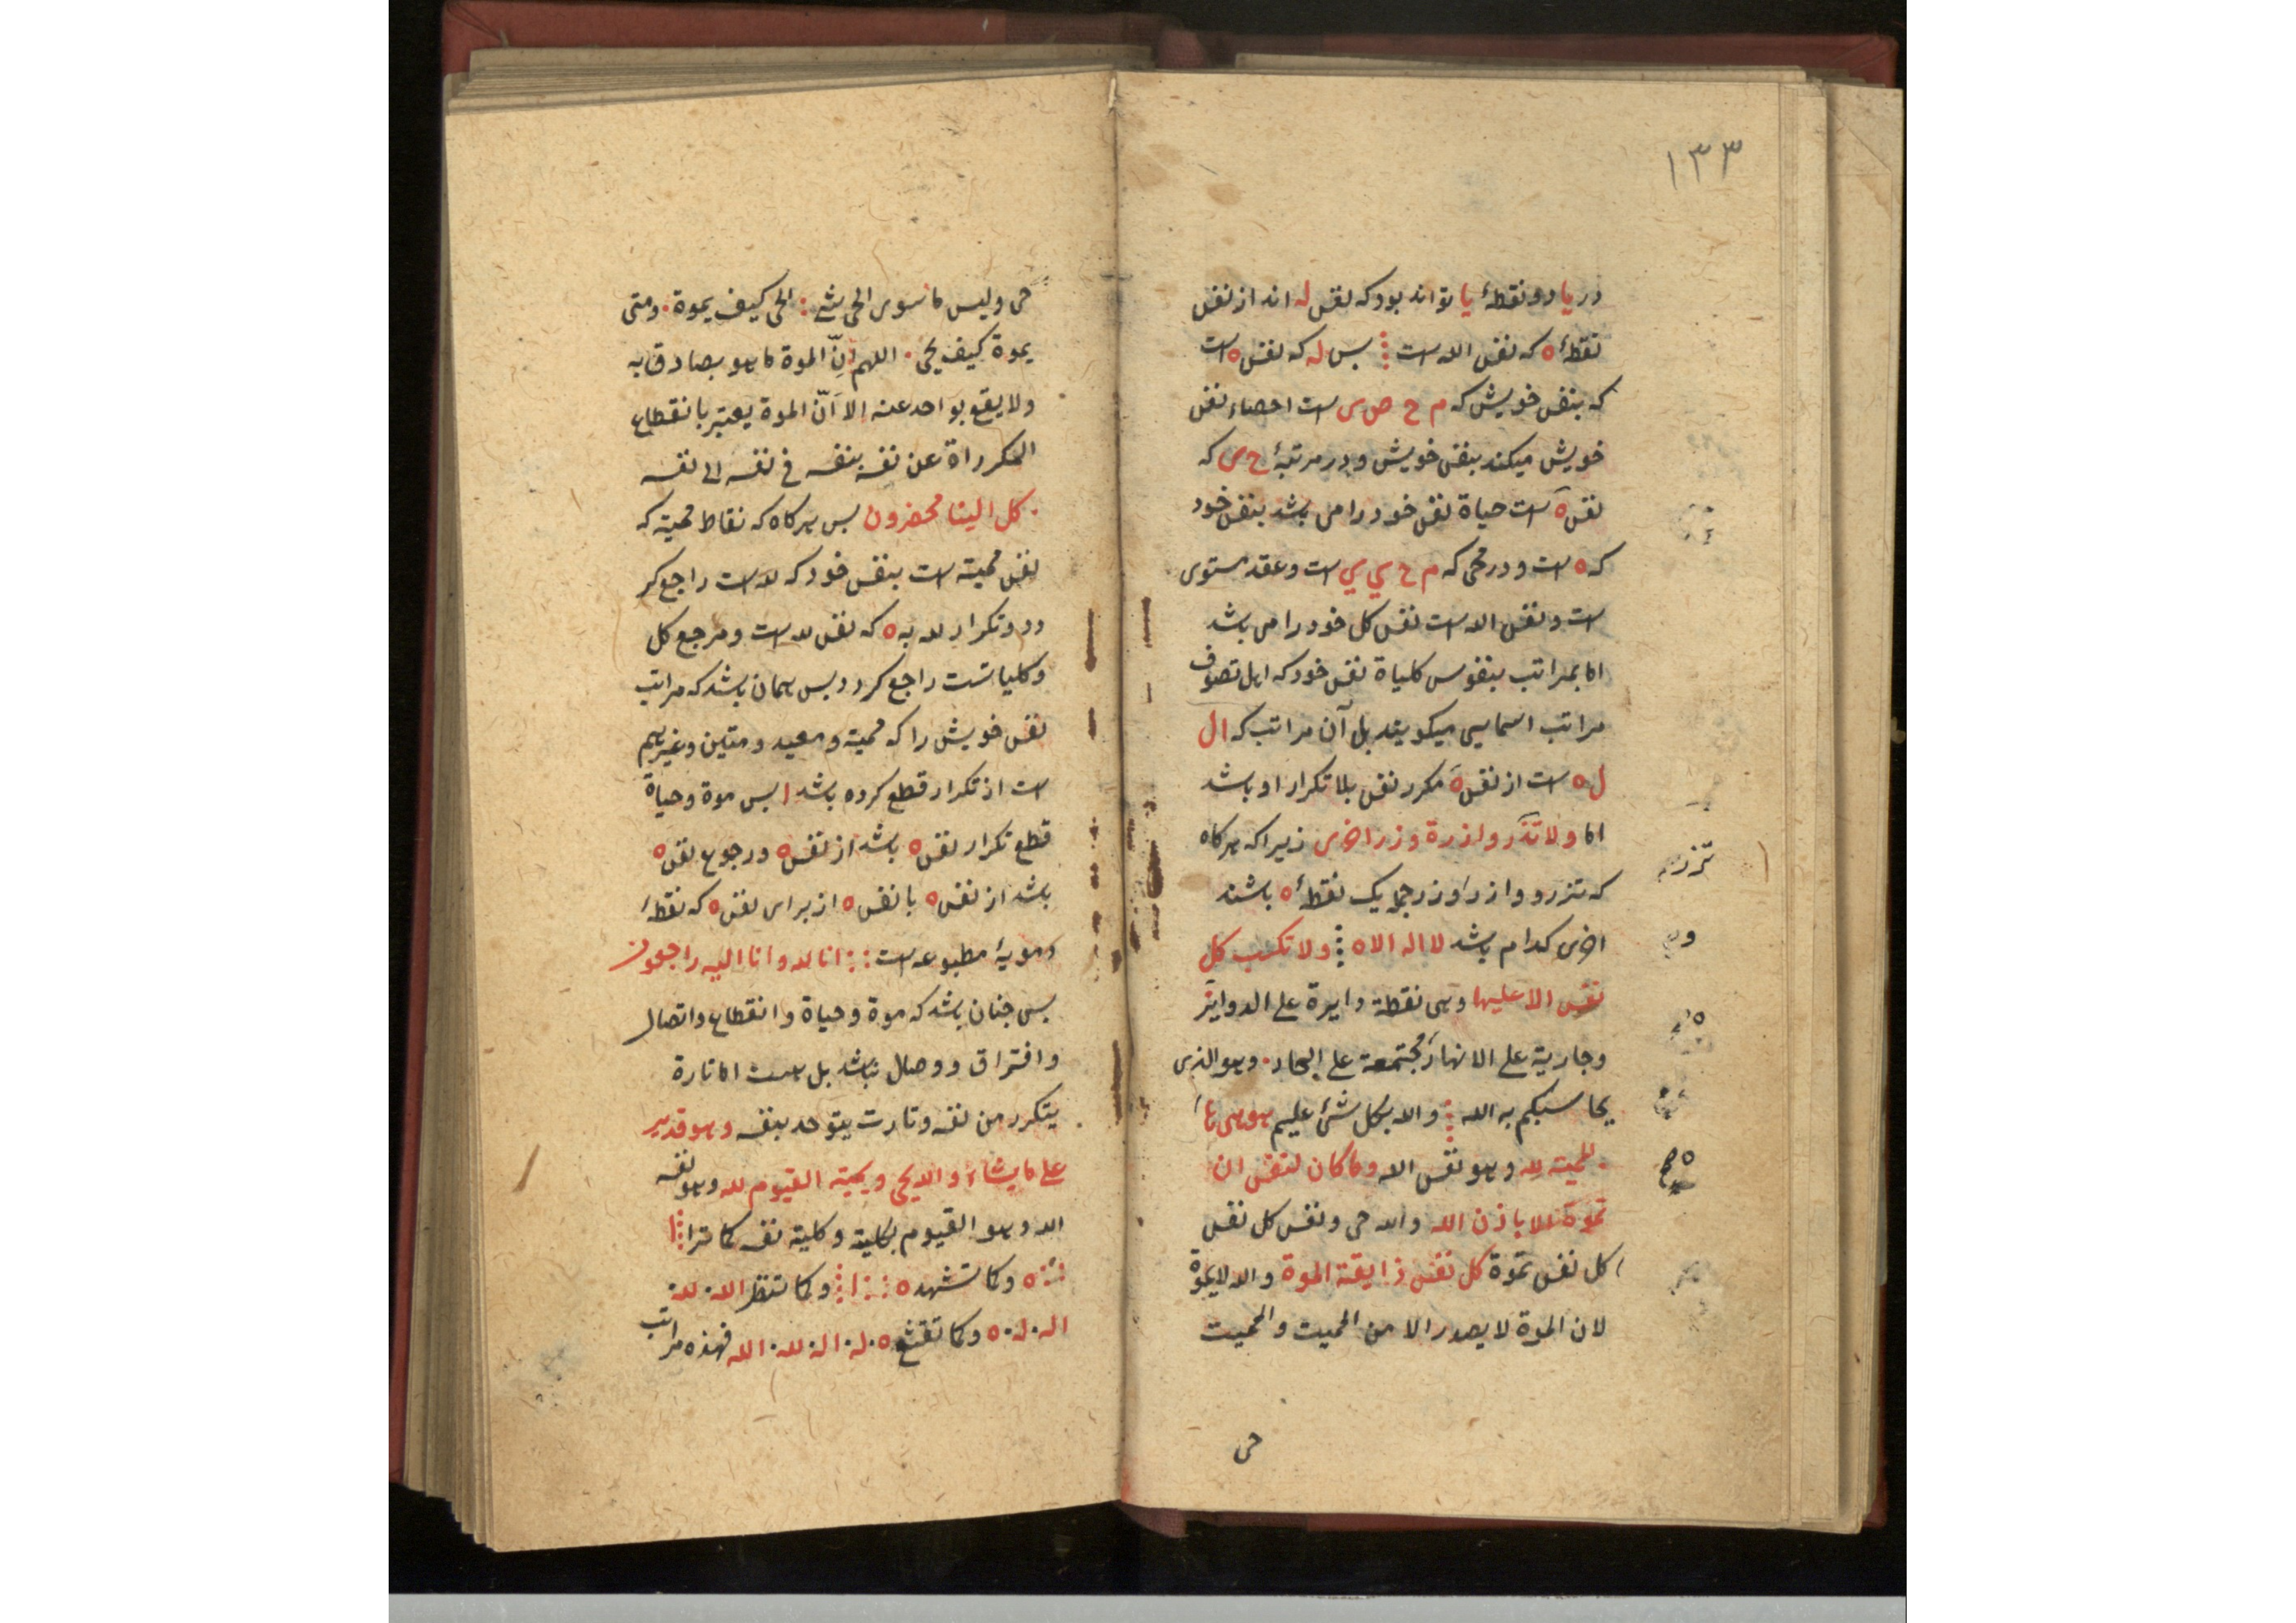 ١٣٣
در یا دو نقطهٔ یا تواند بود که نفس له اند از نفس
نقطهٔ ه که نفس الله است پس له که نفس ه است
که بنفس خویش که م ح ص ی است احصاء نفس
خویش میکند بنفس خویش و در مرتبهٔ ح ی که
نفس ه است حیاة نفس خود را می باشد بنفس خود
که ه است و در محی که م ح ي ي است و عقد مستوی
است و نفس الله است نفس کل خود را می باشد
اما بمراتب بنفوس کلیاة نفس خود که اهل تصوف
مراتب اسمایی میکویند بل آن مراتب که ال
ل ه است از نفس ه مکرر نفس بلا تکرار او باشد
اما ولا تذر وازرة وزر اخری زیرا که هرکاه
که تزر و وازر و وزر جمله یک نقطهٔ ه باشند
اخری کدام باشد لا اله الا ه ولا تکسب کل
نفس الا علیها وهی نقطة دایرة علی الدوایر
وجاریة علی الانهار مجتمعة علی البحار وهو الذی
یحاسبکم به الله والله بکل شیء علیم هو هی ها
لمیته لله وهو نفس الله وما کان لنفس ان
تموة الا باذن الله والله حی ونفس کل نفس
کل نفس تموة کل نفس ذایقة الموة والله لا یموة
لان الموة لا یصدر الا من الممیت والممیت
حی
تزر
حی ولیس ما سوی الحی شیء الحی کیف یموة ومتی
یموة کیف یحیی اللهم انّ الموة ما هو بصادق به
ولا یقع بواحد عنه الا انّ الموة یعتبر بانقطاع
المکرراة عن نفسه بنفسه فی نفسه الی نفسه
کل الینا محضرون پس هرکاه که نقاط ممیته که
نفس ممیته است بنفس خود که لله است راجع کر
دد و تکرار لله به ه که نفس لله است و مرجع کل
و کلیاتست راجع کردد پس همان باشد که مراتب
نفس خویش را که ممیته و معید و متین و غیرهم
است از تکرار قطع کرده باشد پس موة و حیاة
قطع تکرار نفس ه باشد از نفس ه و رجوع نفس ه
باشد از نفس ه با نفس ه از برای نفس ه که نقطهٔ
مویهٔ مطبوعه است انا لله وانا الیه راجعون
پس جنان باشد که موة و حیاة و انقطاع و اتصال
و افتراق و وصال نباشد بل هست اما تارة
یتکرر من نفسه وتارت یتوحد بنفسه وهو قدیر
علی ما یشاء والله یحیی ویمیته القیوم لله وهو نفسه
الله وهو القیوم بکلیته وکلیة نفسه کما ترا
ه وکما تشهد ه ا وکما تنظر الله لله
اله له ه وکما تقشع ه له اله لله الله فهذه مراتب